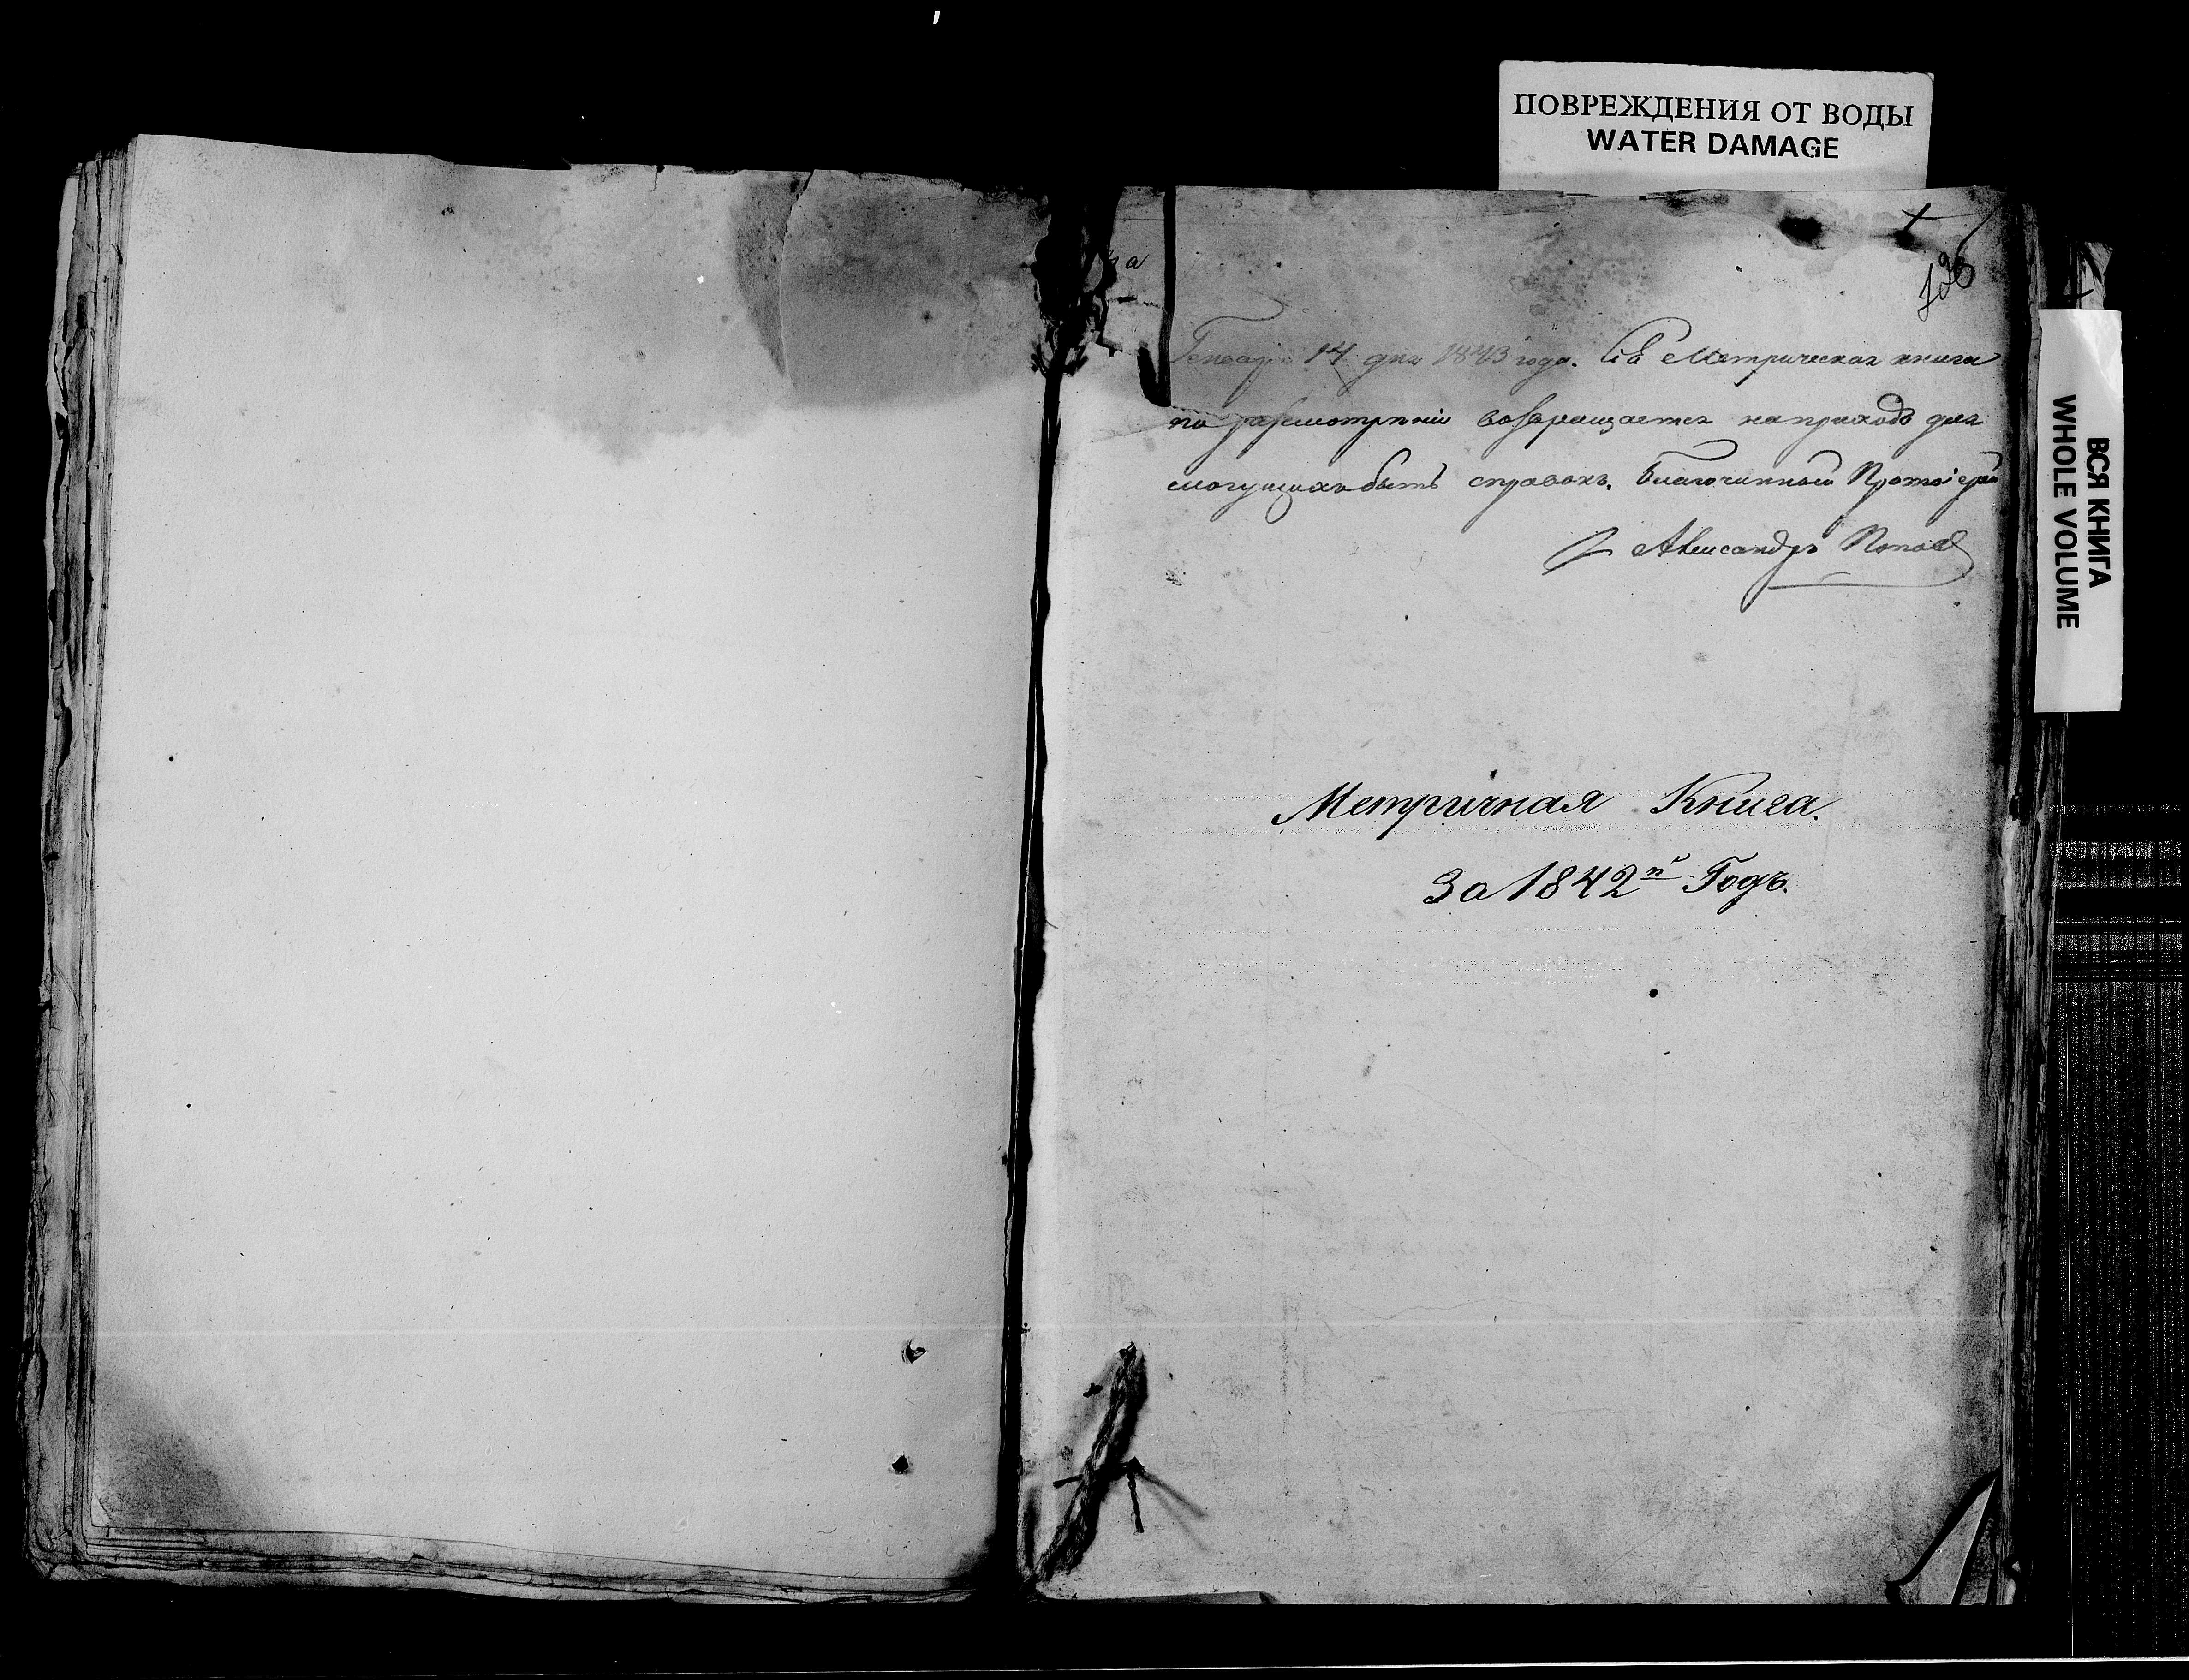 ПОВРЕЖДЕНИЯ ОТ ВОДЫ
WATER DAMAGE
Генваря 14 дня 1843 года. Сія Метрическая книга
по разсмотрѣніи возвращается на приходъ для
могущихъ быть справокъ. Благочинный Протоіерей
Александръ Попов
Метричная Книга.
За 1842й Годъ.
ВСЯ КНИГА
WHOLE VOLUME